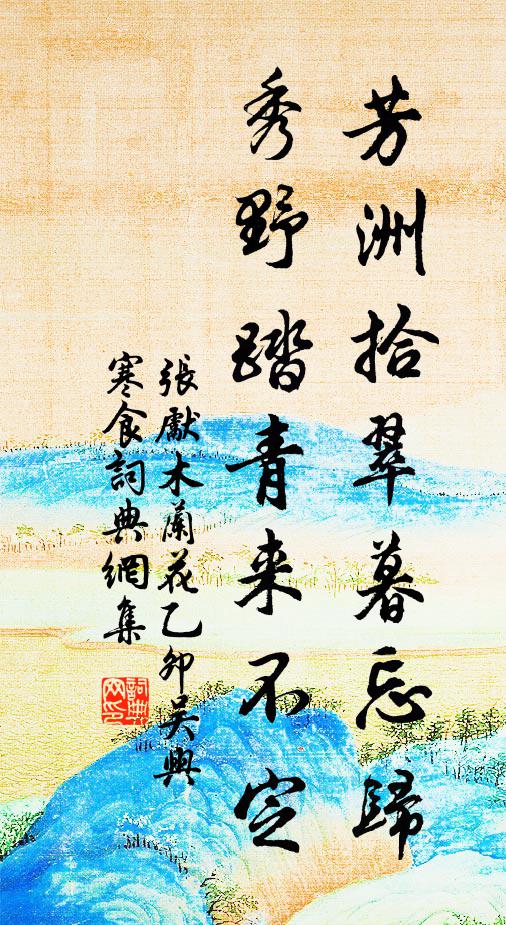 芳洲拾翠暮忘歸
秀野踏青来不定
張獻木蘭花乙卯吴興
寒食詞典網集
詞典網印